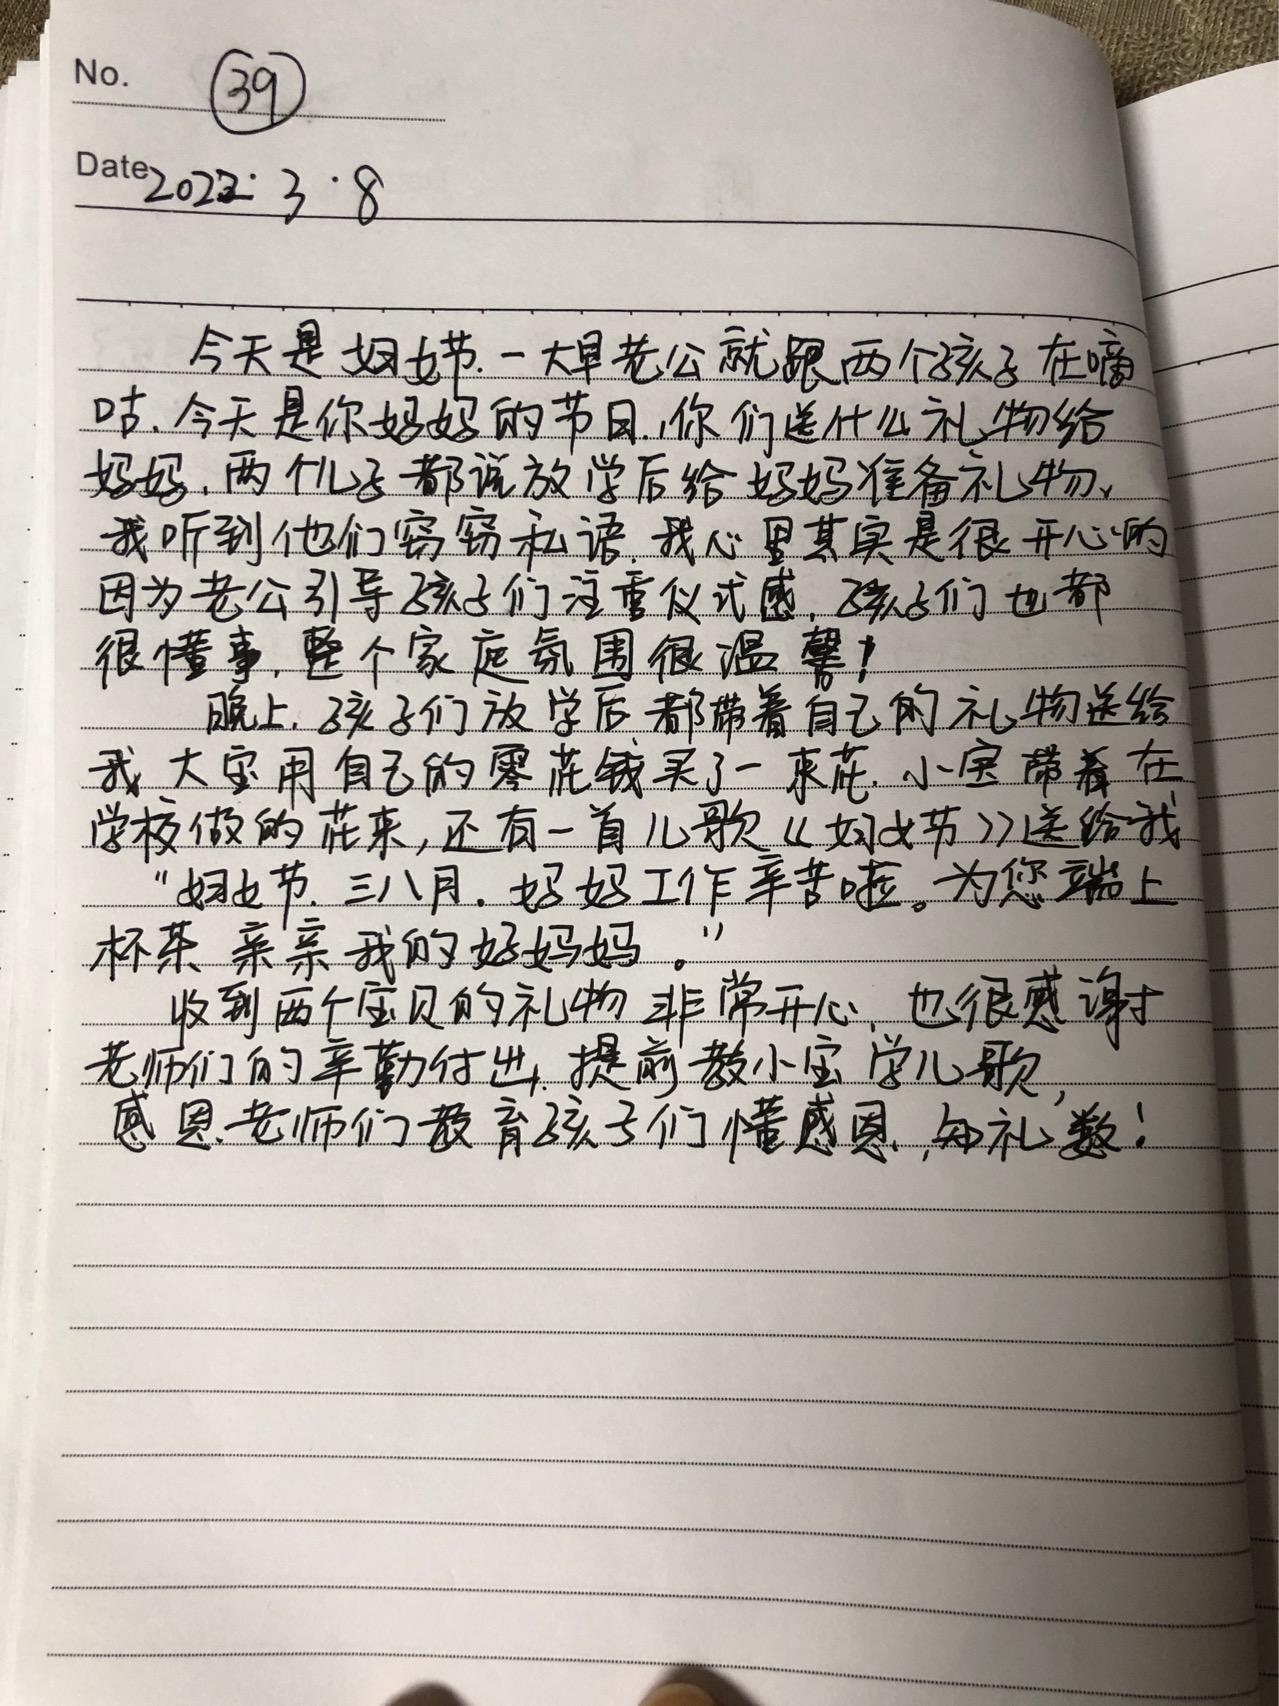 No. 39
Date 2022.3.8
今天是妇女节.一大早老公就跟两个孩子在嘀
咕.今天是你妈妈的节日.,你们送什么礼物给
妈妈.两个儿子都说放学后给妈妈准备礼物、
我听到他们窃窃私语.我心里其实是很开心的
因为老公引导孩子们注重仪式感.孩子们也都
很懂事.整个家庭氛围很温馨!
晚上.孩子们放学后都带着自己的礼物送给
我 大宝用自己的零花钱买了一束花.小宝带着在
学校做的花束,还有一首儿歌《妇女节》送给我
“妇女节.三八月.妈妈工作辛苦啦。为您端上
杯茶 亲亲我的好妈妈。”
收到两个宝贝的礼物非常开心、也很感谢
老师们的辛勤付出.提前教小宝学儿歌,
感恩.老师们教育孩子们懂感恩.,知礼数!